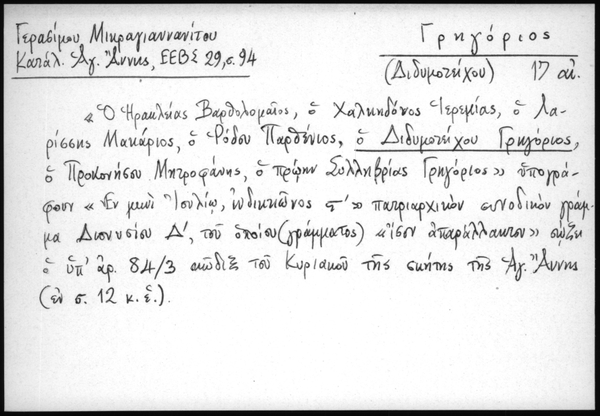 Γερασίμου Μικραγιαννανίτου
Κατάλ. Ἁγ. Ἄννης, ΕΕΒΣ 29, σ. 94
Γρηγόριος
(Διδυμοτείχου) 17 αἰ.
« Ὁ Ἡρακλείας Βαρθολομαῖος, ὁ Χαλκηδόνος Ἱερεμίας, ὁ Λα-
ρίσσης Μακάριος, ὁ Ῥόδου Παρθένιος, ὁ Διδυμοτείχου Γρηγόριος,
ὁ Προκονήσου Μητροφάνης, ὁ πρώην Συλληβρίας Γρηγόριος» ὑπογρά-
φουν « Ἐν μηνὶ Ἰουλίῳ, ἰνδικτιῶνος ϛ΄» πατριαρχικὸν συνοδικὸν γράμ-
μα Διονυσίου Δ΄, τοῦ ὁποίου (γράμματος) «ἴσον ἀπαράλλακτον» σῴζει
ὁ ὑπ' ἀρ. 84/3 κῶδιξ τοῦ Κυριακοῦ τῆς σκήτης τῆς Ἁγ. Ἄννης
(ἐν σ. 12 κ. ἑ.).